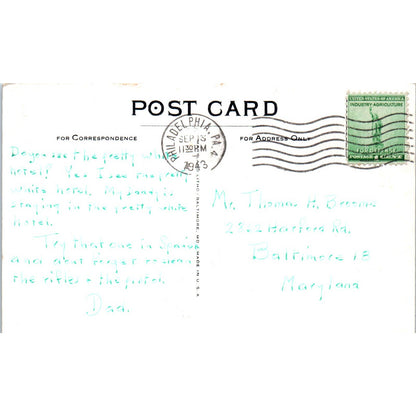 POST CARD
FOR CORRESPONDENCE
FOR ADDRESS ONLY
PHILADELPHIA, PA. 4
SEP 
1943
UNITED STATES OF AMERICA
INDUSTRY·AGRICULTURE
FOR DEFENSE
POSTAGE 1 CENT
Do you see the pretty white
hotel? Yes I see the pretty
white hotel. My 
staying in the pretty white
hotel.
Try that one in Spanish
and don't forget to learn
the cities + the 
Dad.
Mr. Thomas H. 
Harford Rd.
Baltimore 18
Maryland
LITHO, BALTIMORE, MD. MADE IN U.S.A.